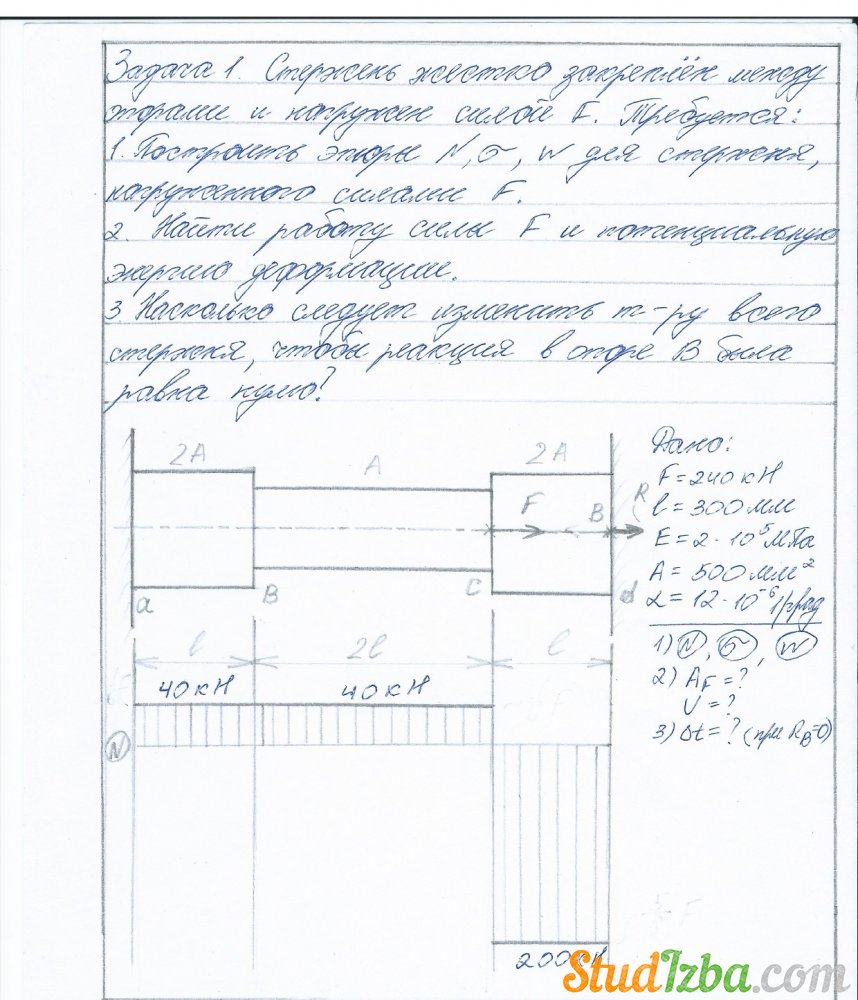 Задача 1. Стержень жестко закреплён между
опорами и нагружен силой F. Требуется:
1. Построить эпюры N, σ, w для стержня,
нагруженного силами F.
2. Найти работу силы F и потенциальную
энергию деформации.
3. Насколько следует изменить т-ру всего
стержня, чтобы реакция в опоре В была
равна нулю?
2A A 2A
F B R
a B C d
Дано:
F = 240 кН
l = 300 мм
E = 2 · 10⁵ МПа
A = 500 мм²
α = 12 · 10⁻⁶ 1/град
1) N, σ, w
2) A_F = ?
U = ?
3) Δt = ? (при R_B=0)
l 2l l
40 кН 40 кН
N
200 кН
StudIzba.com